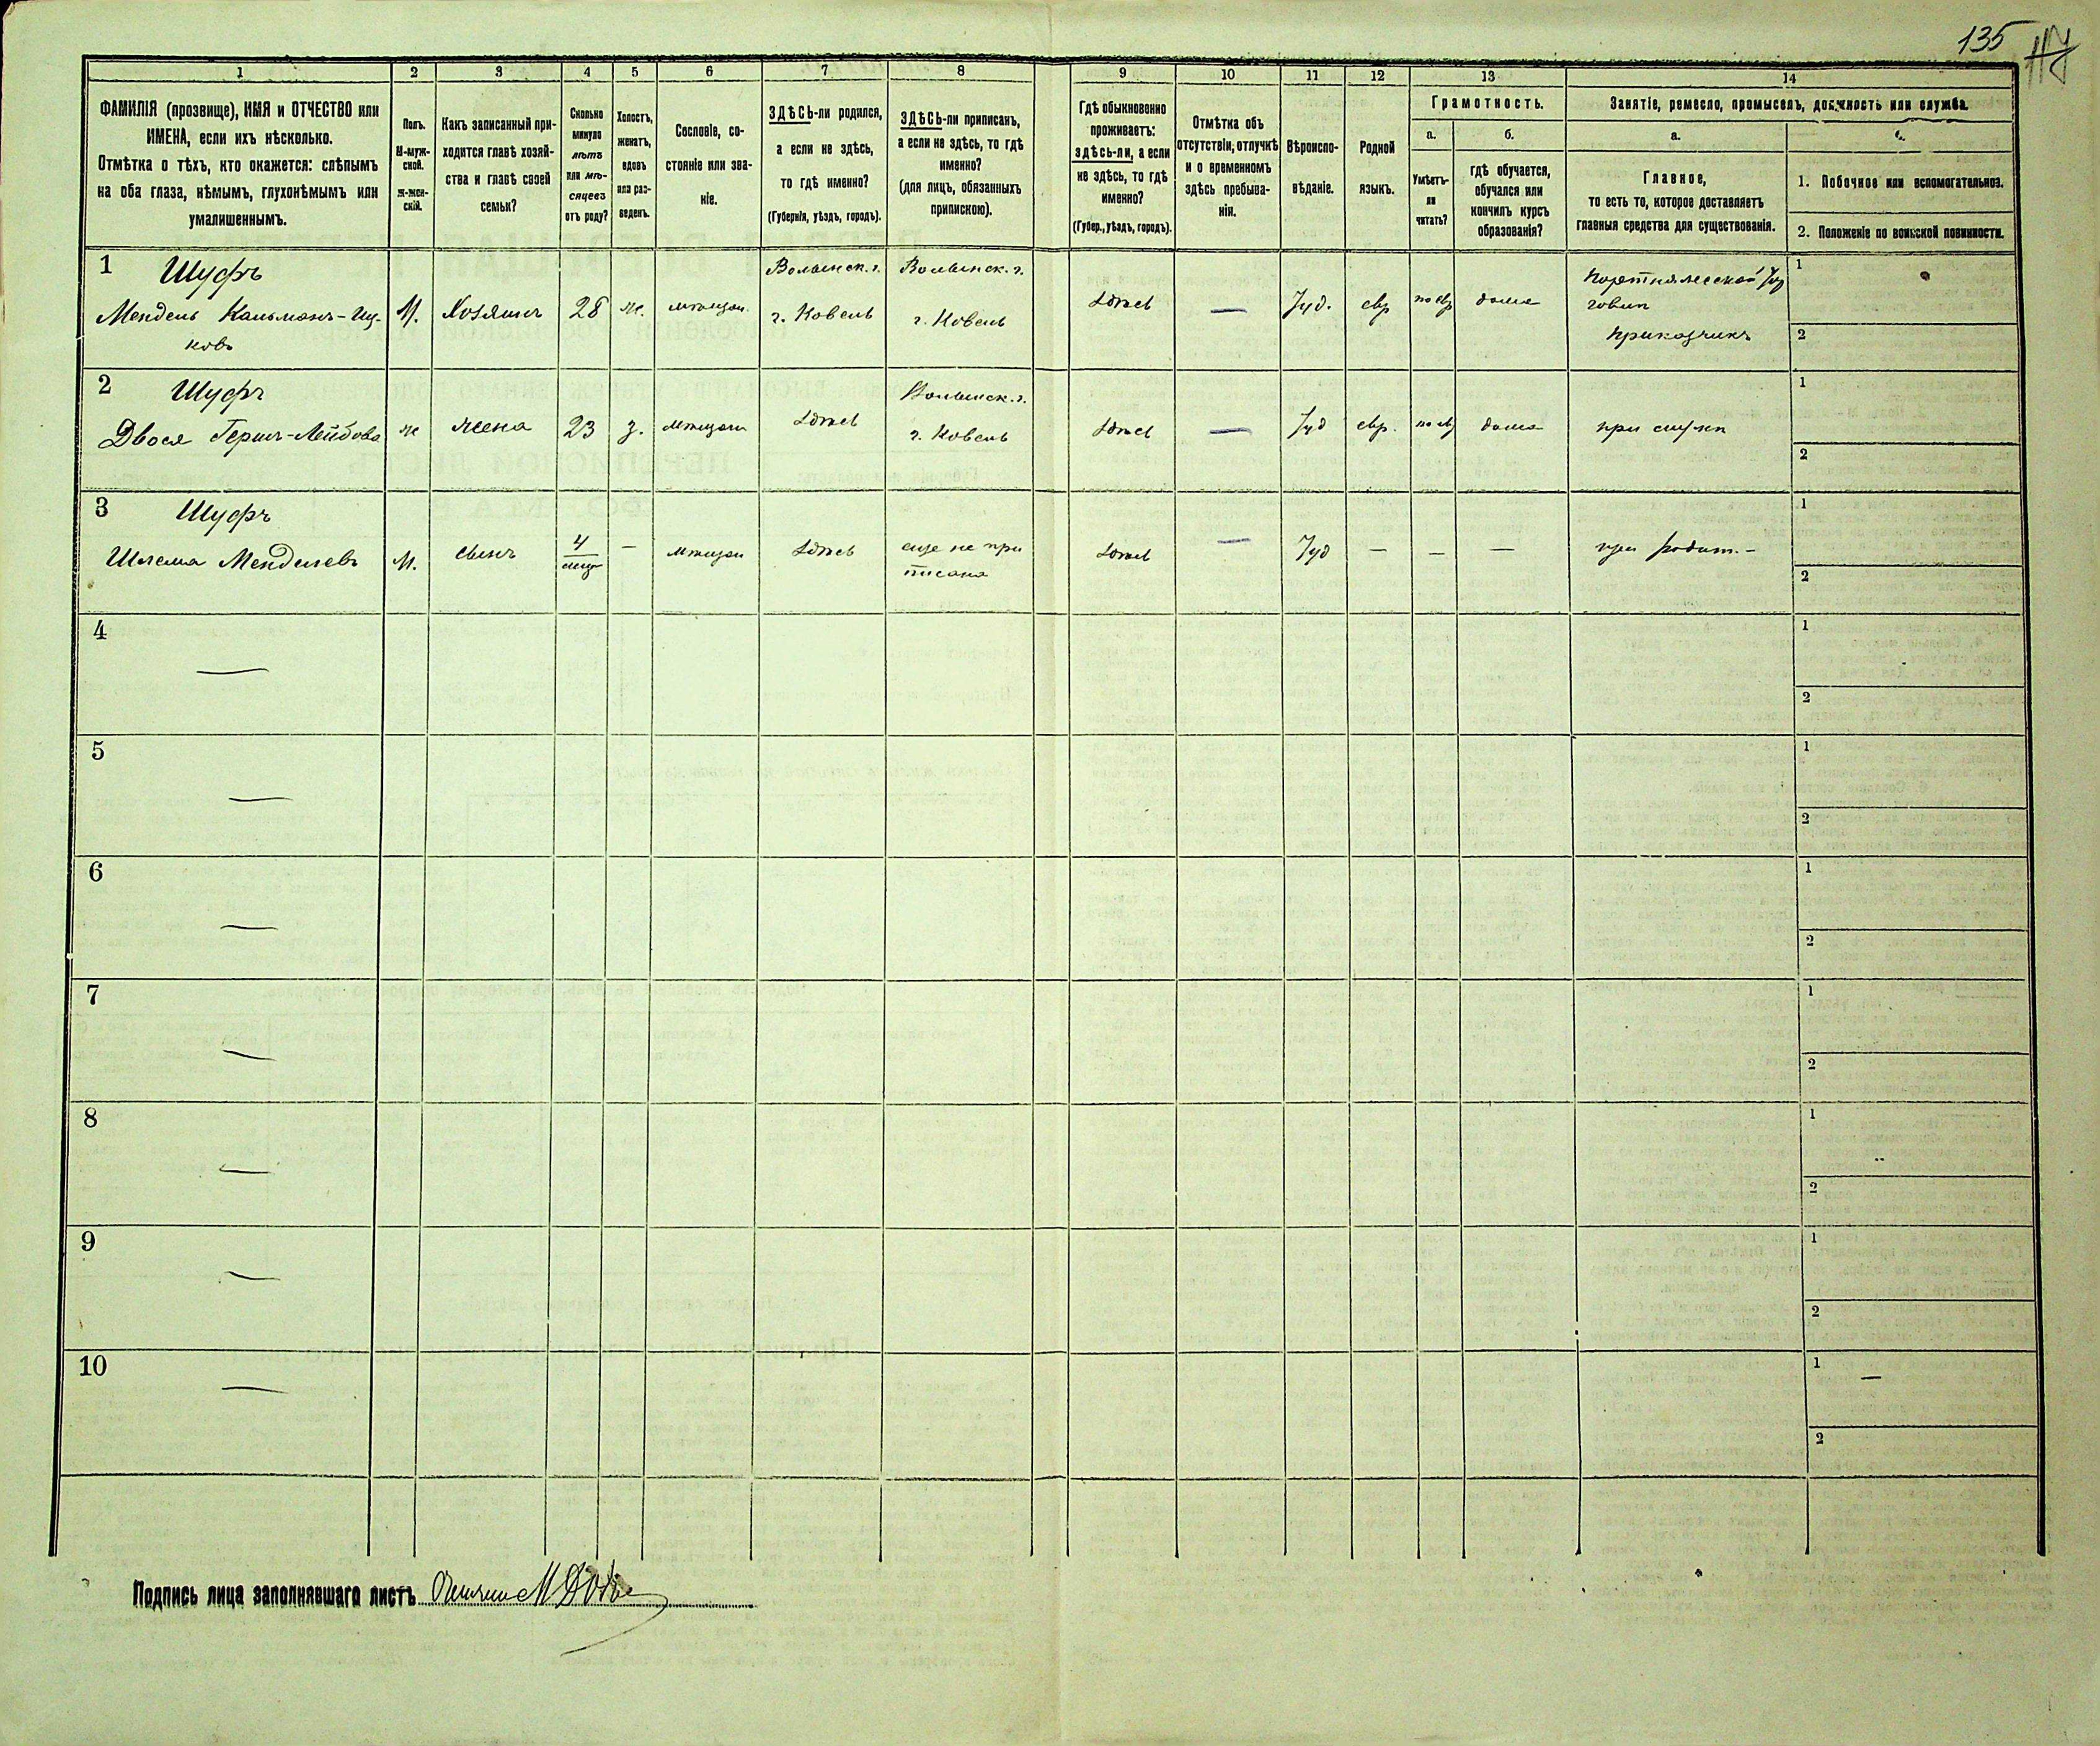 135
1 2 3 4 5 6 7 8 9 10 11 12 13 14
ФАМИЛІЯ (прозвище), ИМЯ и ОТЧЕСТВО или
ИМЕНА, если ихъ нѣсколько.
Отмѣтка о тѣхъ, кто окажется: слѣпымъ
на оба глаза, нѣмымъ, глухонѣмымъ или
умалишеннымъ.
Полъ.
М-муж-
ской.
Ж-жен-
скій.
Какъ записанный при-
ходится главѣ хозяй-
ства и главѣ своей
семьи?
Сколько
минуло
лѣтъ
или мѣ-
сяцевъ
отъ роду?
Холостъ,
женатъ,
вдовъ
или раз-
веденъ.
Сословіе, со-
стояніе или зва-
ніе.
ЗДѢСЬ-ли родился,
а если не здѣсь,
то гдѣ именно?
(Губернія, уѣздъ, городъ).
ЗДѢСЬ-ли приписанъ,
а если не здѣсь, то гдѣ
именно?
(для лицъ, обязанныхъ
припискою).
Гдѣ обыкновенно
проживаетъ:
здѣсь-ли, а если
не здѣсь, то гдѣ
именно?
(Губер., уѣздъ, городъ).
Отмѣтка объ
отсутствіи, отлучкѣ
и о временномъ
здѣсь пребыва-
ніи.
Вѣроиспо-
вѣданіе.
Родной
языкъ.
Грамотность.
а. б.
Умѣетъ-
ли
читать?
гдѣ обучается,
обучался или
кончилъ курсъ
образованія?
Занятіе, ремесло, промыселъ, должность или служба.
а.
Главное,
то есть то, которое доставляетъ
главныя средства для существованія.
1. Побочное или вспомогательное.
2. Положеніе по воинской повинности.
1 Шуфъ Волынск. г. Волынск. г. 1
Мендель Кальманъ-Иц- М. Хозяинъ 28 ж. мѣщан. г. Ковель г. Ковель здѣсь — Іуд. евр по евр дома
ковъ приказчикъ 2
2 Шуфъ Волынск. г. 1
Двося Гершъ-Лейбова ж жена 23 з. мѣщан здѣсь г. Ковель здѣсь — Іуд евр. по ев дома при мужѣ
2
3 Шуфъ 1
Шлема Менделевъ М. сынъ 4 — мѣщан здѣсь еще не при здѣсь — Іуд — — — при родит. —
мѣс писанъ 2
4 — 1
2
5 — 1
2
6 — 1
2
7 — 1
2
8 — 1
2
9 — 1
2
10 — 1 —
2
Подпись лица заполнявшаго листъ